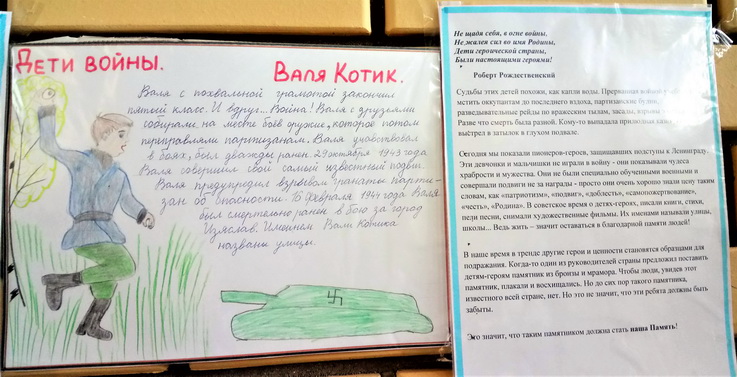 Дети войны.
Валя Котик.
Валя с похвальной грамотой закончил
пятый класс. И вдруг... Война! Валя с друзьями
собирали на месте боёв оружие, которое потом
переправляли партизанам. Валя участвовал
в боях, был дважды ранен. 29 октября 1943 года
Валя совершил свой самый известный подвиг.
Валя предупредил взрывом гранаты парти-
зан об опасности. 16 февраля 1944 года Валя
был смертельно ранен в бою за город
Изяслав. Именем Вали Котика
названы улицы.
Не щадя себя, в огне войны.
Не жалея сил во имя Родины,
Дети героической страны,
Были настоящими героями!
Роберт Рождественский
Судьбы этих детей похожи, как капли воды. Прерванная войной
мстить оккупантам до последнего вздоха, партизанские будни,
разведывательные рейды по вражеским тылам, засады, взрывы
Разве что смерть была разной. Кому-то выпадала
выстрел в затылок в глухом подвале.
Сегодня мы показали пионеров-героев, защищавших подступы к Ленинграду.
Эти девчонки и мальчишки не играли в войну - они показывали чудеса
храбрости и мужества. Они не были специально обученными военными и
совершали подвиги не за награды - просто они очень хорошо знали цену таким
словам, как «патриотизм», «подвиг», «доблесть», «самопожертвование»,
«честь», «Родина». В советское время о детях-героях, писали книги, стихи,
пели песни, снимали художественные фильмы. Их именами называли улицы,
школы... Ведь жить – значит оставаться в благодарной памяти людей!
В наше время в тренде другие герои и ценности становятся образцами для
подражания. Когда-то один из руководителей страны предложил поставить
детям-героям памятник из бронзы и мрамора. Чтобы люди, увидев этот
памятник, плакали и восхищались. Но до сих пор такого памятника,
известного всей стране, нет. Но это не значит, что эти ребята должны быть
забыты.
Это значит, что таким памятником должна стать наша Память!